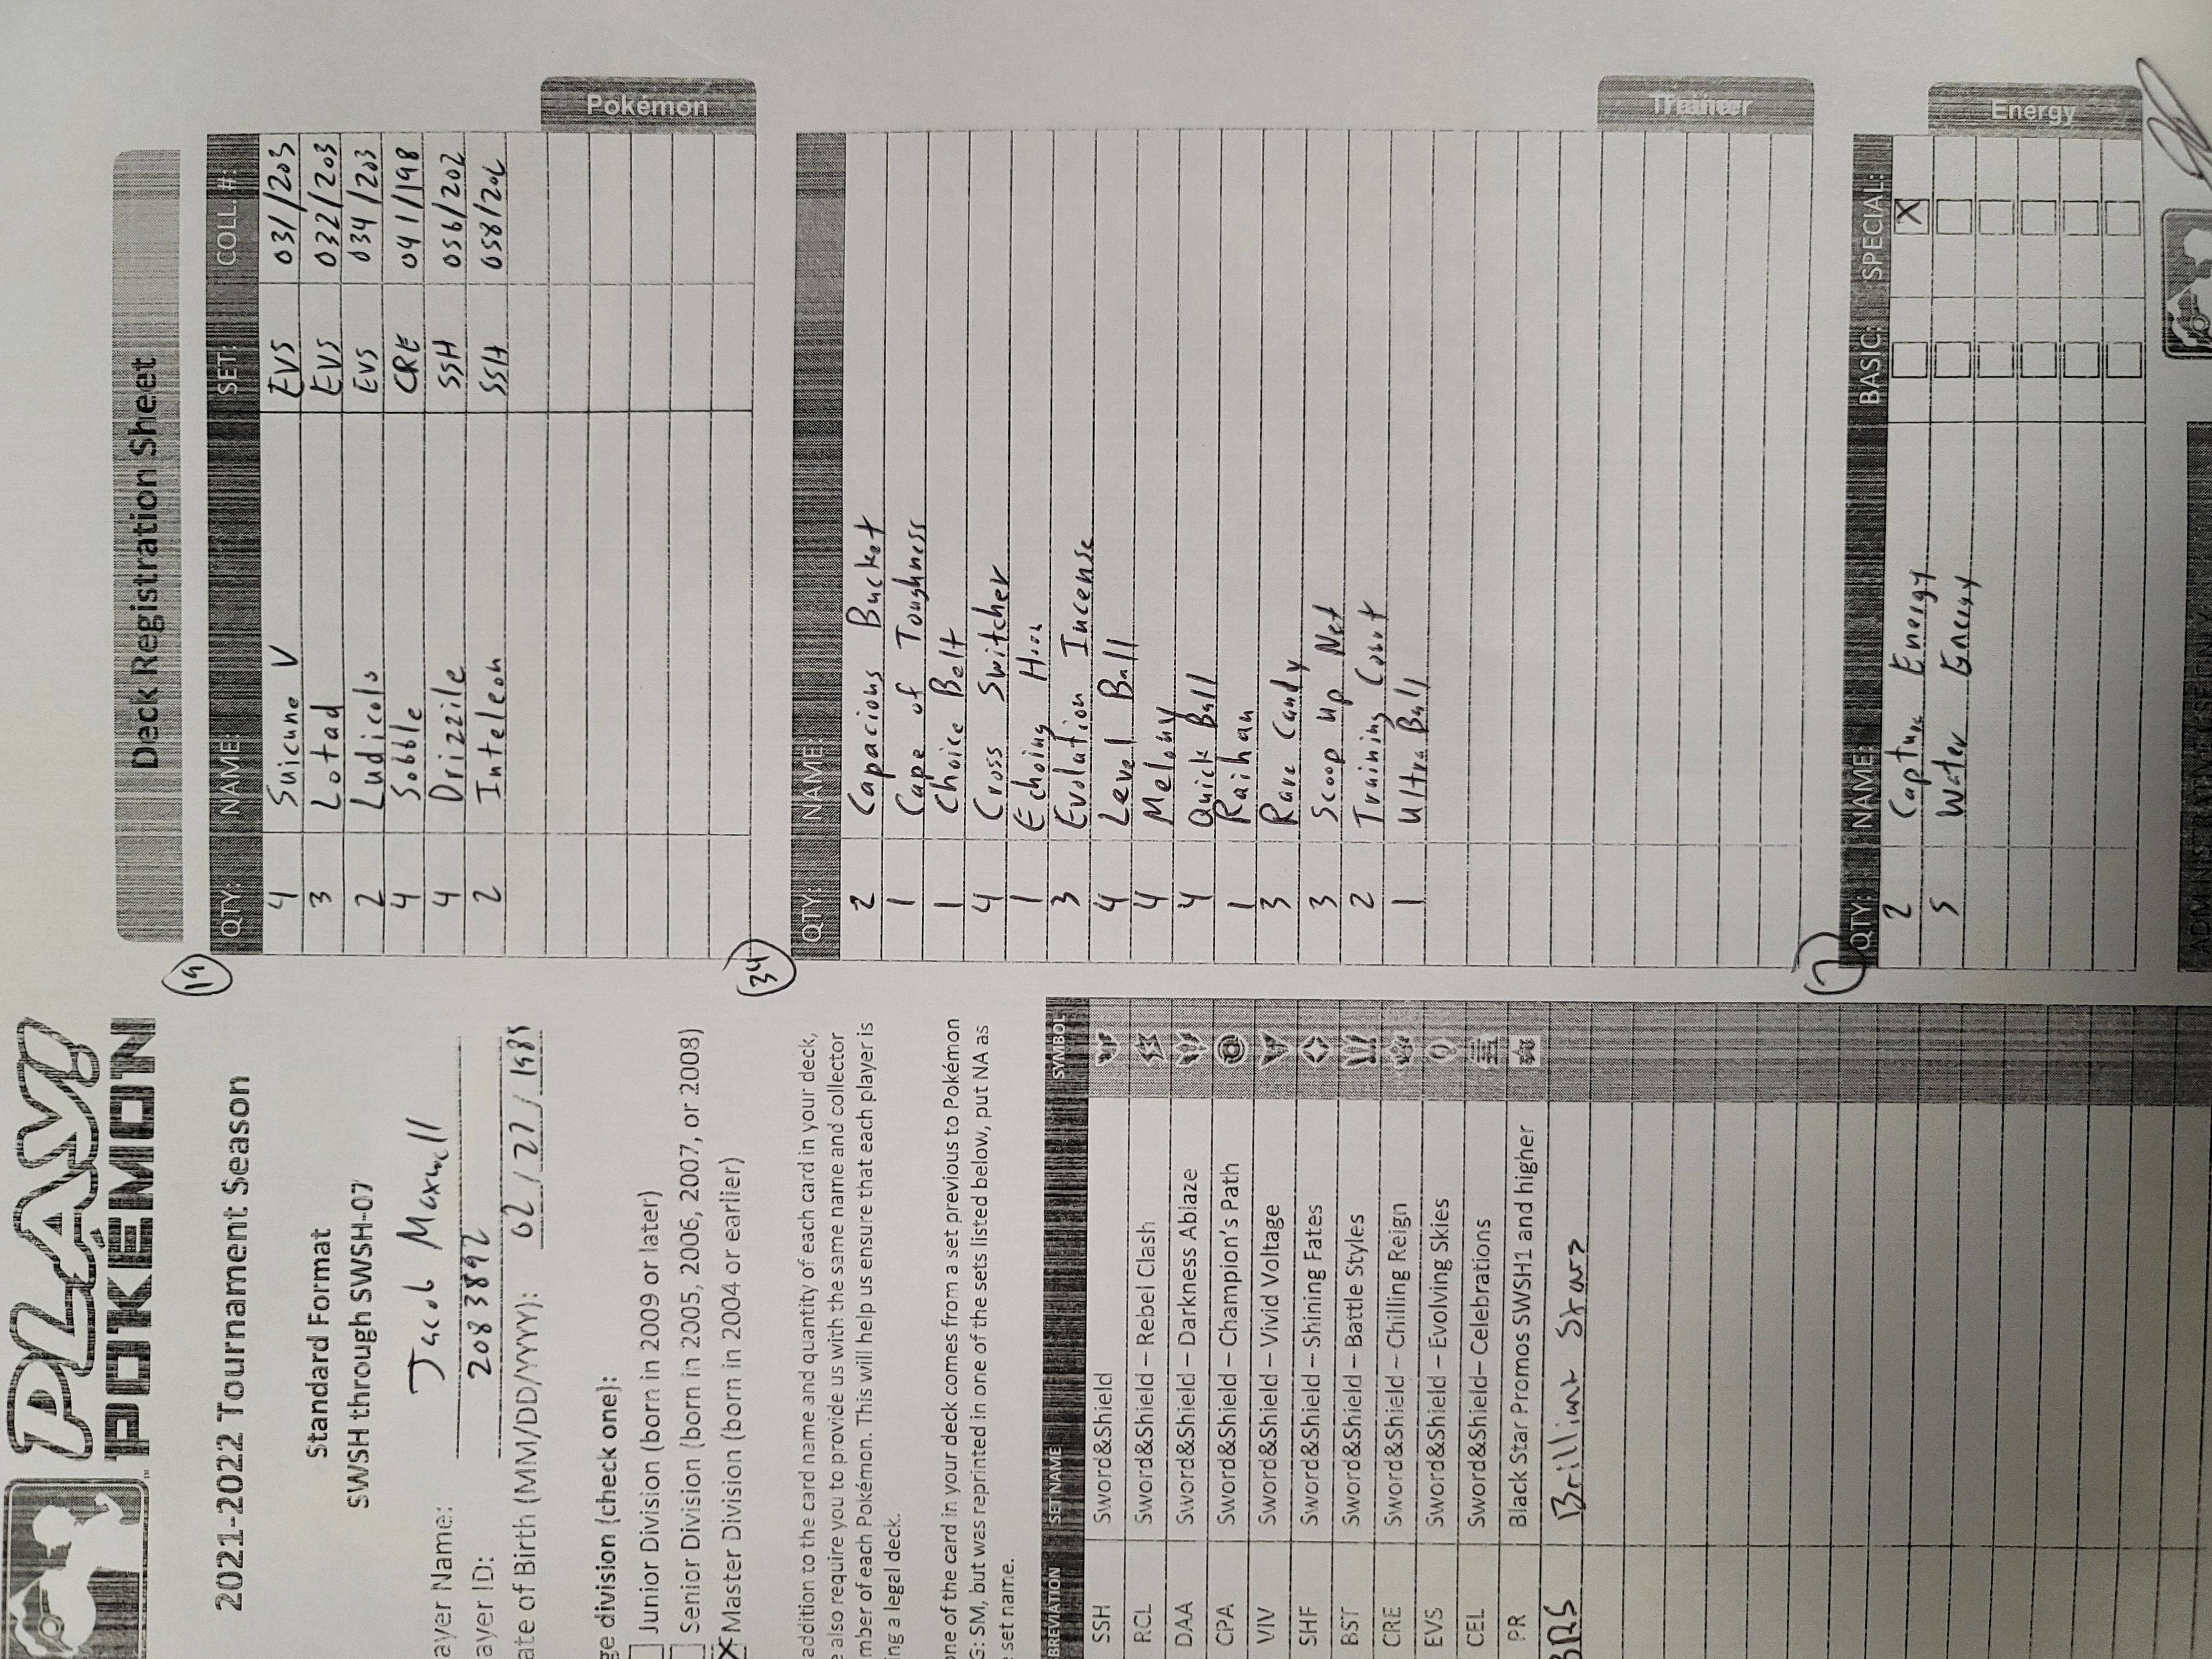 PLAY!
POKÉMON
2021-2022 Tournament Season
Standard Format
SWSH through SWSH-07
ayer Name: Jacob Maxwell
ayer ID: 2083892
ate of Birth (MM/DD/YYYY): 02/27/1985
ge division (check one):
Junior Division (born in 2009 or later)
Senior Division (born in 2005, 2006, 2007, or 2008)
X Master Division (born in 2004 or earlier)
addition to the card name and quantity of each card in your deck,
e also require you to provide us with the same name and collector
mber of each Pokémon. This will help us ensure that each player is
ing a legal deck.
one of the card in your deck comes from a set previous to Pokémon
G: SM, but was reprinted in one of the sets listed below, put NA as
e set name.
BREVIATION SET NAME SYMBOL
SSH Sword&Shield
RCL Sword&Shield – Rebel Clash
DAA Sword&Shield – Darkness Ablaze
CPA Sword&Shield – Champion's Path
VIV Sword&Shield – Vivid Voltage
SHF Sword&Shield – Shining Fates
BST Sword&Shield – Battle Styles
CRE Sword&Shield – Chilling Reign
EVS Sword&Shield – Evolving Skies
CEL Sword&Shield– Celebrations
PR Black Star Promos SWSH1 and higher
BRS Brilliant Stars
Deck Registration Sheet
19
QTY: NAME: SET: COLL. #:
4 Suicune V EVS 031/203
3 Lotad EVS 032/203
2 Ludicolo EVS 034/203
4 Sobble CRE 041/198
4 Drizzile SSH 056/202
2 Inteleon SSH 058/202
Pokémon
34
QTY: NAME:
2 Capacious Bucket
1 Cape of Toughness
1 Choice Belt
4 Cross Switcher
1 Echoing Horn
3 Evolution Incense
4 Level Ball
4 Melony
4 Quick Ball
1 Raihan
3 Rare Candy
3 Scoop Up Net
2 Training Court
1 Ultra Ball
Trainer
7
QTY: NAME: BASIC: SPECIAL:
2 Capture Energy X
5 Water Energy
Energy